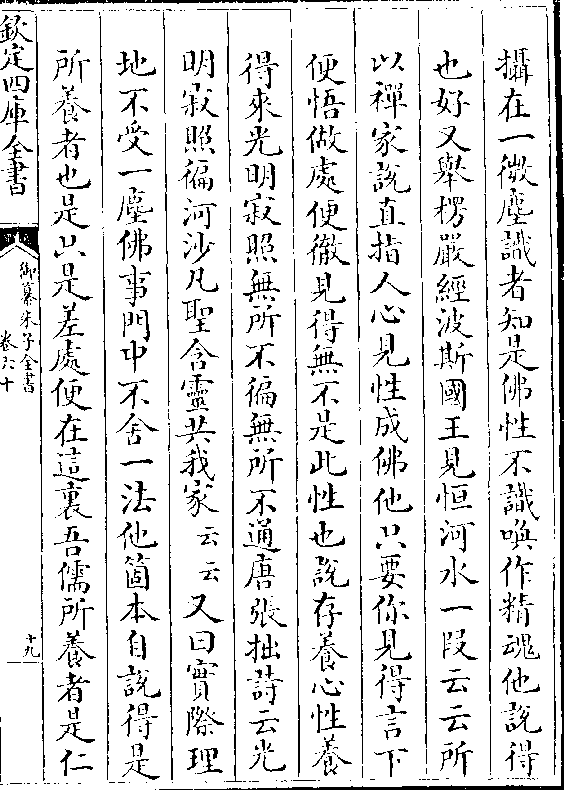 攝在一微塵識者知是佛性不識喚作精魂他說得
也好又舉楞嚴經波斯國王見恒河水一段云云所
以禪家說直指人心見性成佛他只要你見得言下
便悟做處便徹見得無不是此性也說存養心性養
得來光明寂照無所不徧無所不通唐張拙詩云光
明寂照徧河沙凡聖含靈共我家云云又曰實際理
地不受一塵佛事門中不舍一法他箇本自說得是
所養者也是只是差處便在這裏吾儒所養者是仁
欽定四庫全書
御纂朱子全書
卷六十
十九